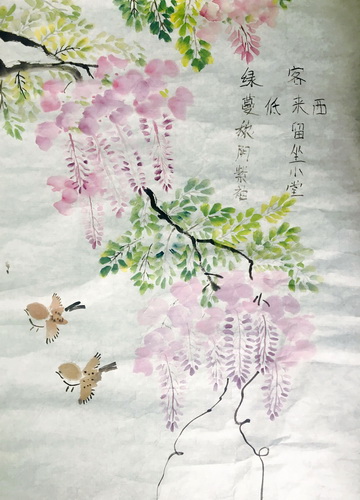 绿蔓秾阴紫袖
低
客来留坐小堂
西